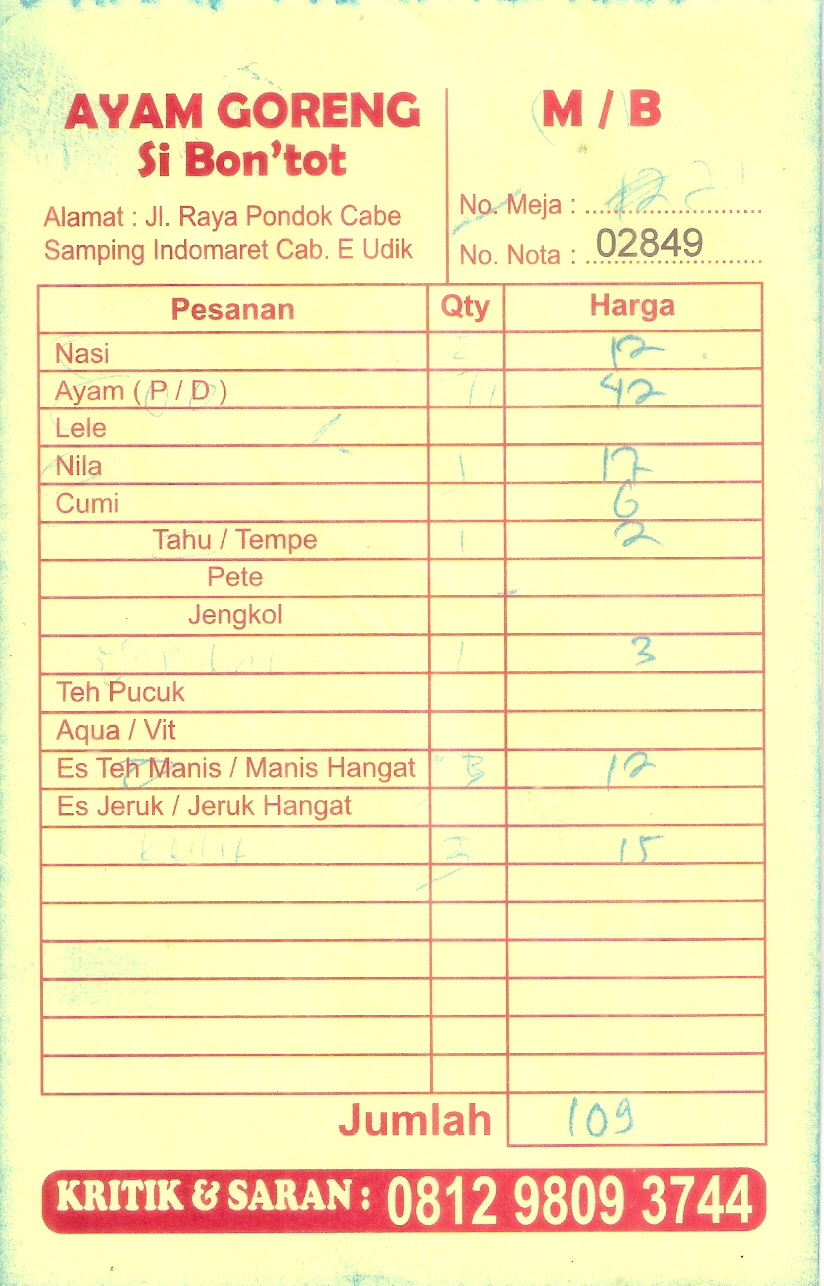 AYAM GORENG
Si Bon'tot
Alamat : Jl. Raya Pondok Cabe
Samping Indomaret Cab. E Udik
M / B
No. Meja :
No. Nota : 02849
Pesanan Qty Harga
Nasi 2 12
Ayam ( P / D ) 42
Lele
Nila 1 17
Cumi 6
Tahu / Tempe 1 2
Pete
Jengkol
1 3
Teh Pucuk
Aqua / Vit
Es Teh Manis / Manis Hangat 3 12
Es Jeruk / Jeruk Hangat
15
Jumlah 109
KRITIK & SARAN : 0812 9809 3744